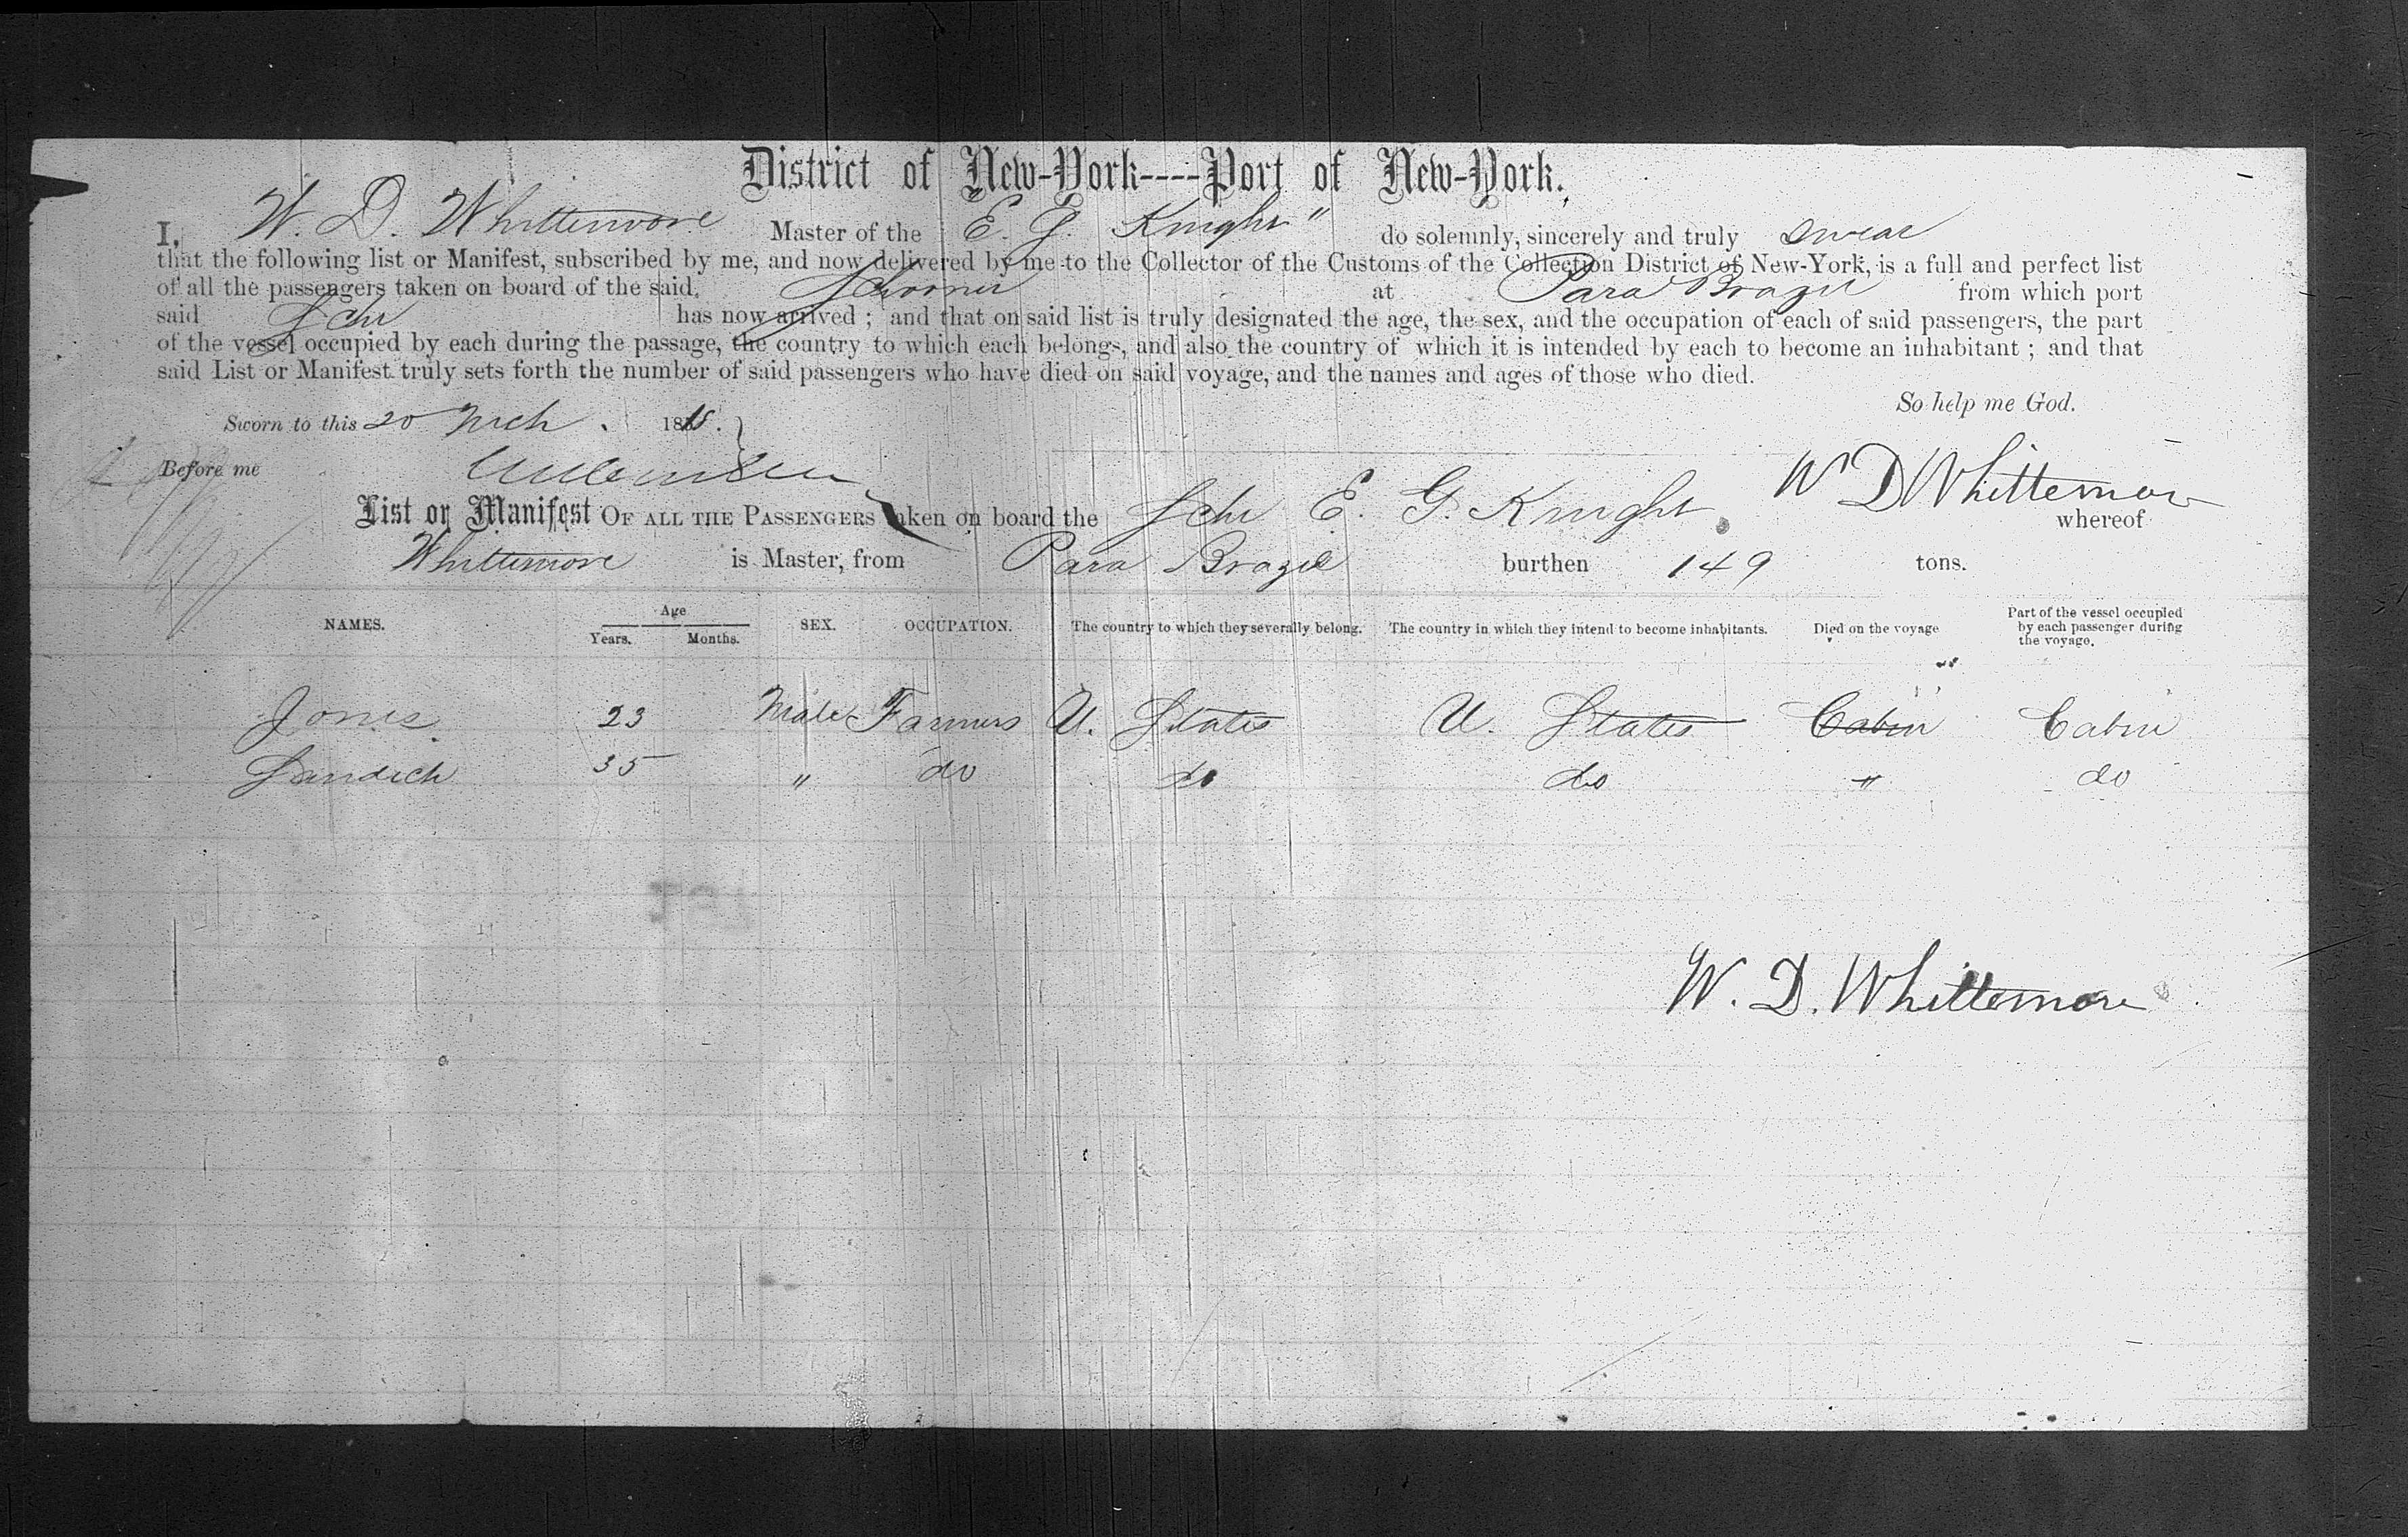 District of New-York----Port of New-York.
I, W. D. Whittemore Master of the "E. G. Knight" do solemnly, sincerely and truly swear
that the following list or Manifest, subscribed by me, and now delivered by me to the Collector of the Customs of the Collection District of New-York, is a full and perfect list
of all the passengers taken on board of the said, Schooner at Para Brazil from which port
said Schr has now arrived ; and that on said list is truly designated the age, the sex, and the occupation of each of said passengers, the part
of the vessel occupied by each during the passage, the country to which each belongs, and also the country of which it is intended by each to become an inhabitant ; and that
said List or Manifest truly sets forth the number of said passengers who have died on said voyage, and the names and ages of those who died.
So help me God.
Sworn to this 20 Mch . 18
Before me
W D Whittemore
List or Manifest OF ALL THE PASSENGERS taken on board the Schr E. G. Knight whereof
Whittemore is Master, from Para Brazil burthen 149 tons.
NAMES. Age Years. Months. SEX. OCCUPATION. The country to which they severally belong. The country in which they intend to become inhabitants. Died on the voyage Part of the vessel occupied by each passenger during the voyage.
Jones 23 Male Farmers U. States U. States Cabin Cabin
Sandich 35 " do do do " do
W. D. Whittemore